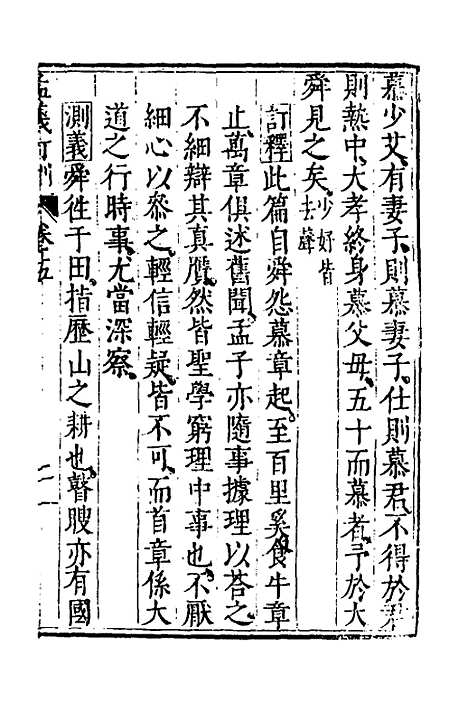 慕少艾、有妻子、則慕妻子、仕則慕君、不得於君
則熱中、大孝終身慕父母、五十而慕者、予於大
舜見之矣、少好皆去聲
訂釋此篇自舜怨慕章起、至百里奚食牛章
止、萬章俱述舊聞、孟子亦隨事據理以荅之、
不細辯其真贋、然皆聖學窮理中事也、不厭
細心以叅之、輕信輕疑、皆不可、而首章係大
道之行時事、尤當深察、
測義舜徃于田、指歷山之耕也、瞽瞍亦有國
孟義訂測 卷十五 二